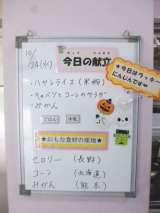 今日の献立
10/24(火)
・ハヤシライス(米粉)
・キャベツとコーンのサラダ
・みかん
★今日はクッキー
にんじんです
★おもな食材の産地★
セロリー(長野)
コーン(北海道)
みかん(熊本)